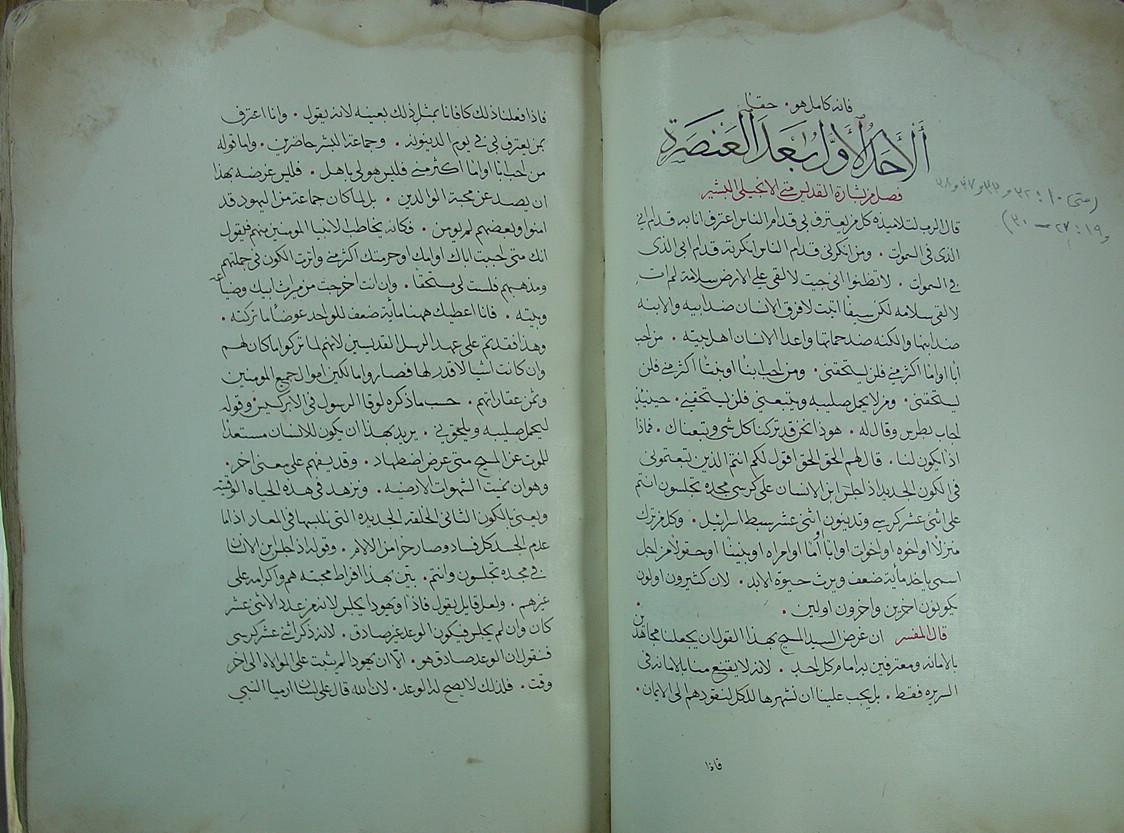 فانه كامل هو . حقًا
أَلأَحَدُ الأَوَّلُ بَعدَ العَنصَرَة
فصل من بشارة القديس متى الانجيلي البشير
(متى ١٠: ٣٢ و٣٣ و٣٧ و٣٨
و١٩: ٢٧ — ٣٠)
قال الرب لتلاميذه كل من يعترف بي قدام الناس اعترف انا به قدام ابي
الذى في السموات . ومن انكرني قدام الناس انكرته قدام ابى الذى
في السموات . لا تظنوا اني جيت لالقي علي الارض سلامة لم ات
لالقى سلامه لكن سيفًا اتيت لافرق الانسان ضد ابيه والابنه
ضد امها والكنه ضد حماتها واعدا الانسان اهل بيته . من احب
ابًا او امًا اكثر مني فلن يستحقني . ومن احب ابنًا او بنتًا اكثر مني فلن
يستحقني . ومن لا يحمل صليبه ويتبعني فلن يستحقني . حينيذٍ
اجاب بطرس وقال له . هوذا نحن قد تركنا كل شي وتبعناك . فماذا
اذًا يكون لنا . قال لهم الحق الحق اقول لكم انتم الذين تبعتموني
في الكون الجديد اذا جلس ابن الانسان على كرسي مجده تجلسون انتم
على اثنى عشر كرسي وتدينون اثنى عشر سبط اسرائيل . وكل من ترك
منزلًا او اخوه او اخوات او ابًا او امًا او امراه او بنينًا او حقولًا من اجل
اسمي ياخذ مأية ضعف ويرث حيوة الابد . لان كثيرون اولون
يكونون اخرين واخرون اولين .
قال المفسر ان غرض السيد المسيح بهذا القول ان يجعلنا مجاهدين
بالامانه ومعترفين بها امام كل احد . لانه لا يقتنع منا بالامانه فى
السريره فقط . بل يجب علينا ان نشهرها للكل لنقودهم الى الايمان .
فاذا
فاذا فعلنا ذلك كافانا بمثل ذلك بعينه لانه يقول . وانا اعترف
بمن يعترف بي في يوم الدينونه . وجماعة البشر حاضرين . واما قوله
من احب ابًا او امًا اكثر مني فليس هو لي باهل . فليس غرضه بهذا
ان يصد عن محبة الوالدين . بل لما كان جماعة من اليهود قد
امنوا وبعضهم لم يومن . فكانه يخاطب الابنا المومنين منهم فيقول
انك متى احببت اباك او امك او حرمتك اكثر مني واثرت الكون في جملتهم
ومذهبهم فلست لي بمستحق . وان انت اخرجت من ميراث ابيك وضياعه
وبيته . فانا اعطيك ههنا مأية ضعف للواحد عوضًا ما تركته .
وهذا فقد تم على عهد الرسل القديسين لانهم لما تركوا ما كان لهم
وان كانت اشيا لا قدر لها فصاروا مالكين اموال جميع المومنين
وثمن عقاراتهم . حسب ما ذكره لوقا الرسول في الابركسيس وقوله
ليحمل صليبه ويلحق بي . يريد بهذا ان يكون للانسان مستعدًا
للموت عن المسيح متى عرض اضطهاد . وقد يفهم على معنى اخر .
وهو ان نميت الشهوات الارضيه . ونزهد في هذه الحياه الوقتيه
ويعني بالكون الثاني الخلقه الجديده التى نلبسها في المعاد اذا ما
عدم الجسد كل فساد وصار حرًا من الالام . وقوله اذا جلس ابن الانسان
في مجده تجلسون وانتم . يبين بهذا افراط محبته هم واكرامه على
غيرهم . ولعل قايل يقول فاذًا ويهودا يجلس لانه من عدد الاثني عشر
كان وان لم يجلس فيكون الوعد غير صادق . لانه ذكر اثني عشر كرسي
فنقول ان الوعد صادق هو . الا ان يهودا لم يثبت على الموالاه الى اخر
وقت . فلذلك لا يصح له الوعد . لان الله قال على لسان ارميا النبي